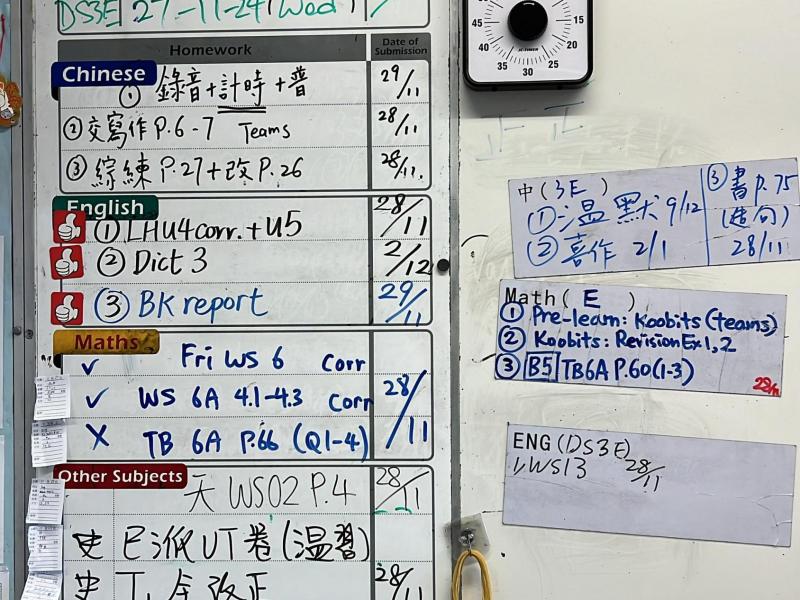 DS3E 27-11-24 (Wed)
Homework
Date of Submission
Chinese
① 錄音+計時+普 29/11
② 交寫作 P.6-7 Teams 28/11
③ 綜練 P.27+改 P.26 28/11.
English
① LHU4corr.+U5 28/11
② Dict 3 2/12
③ BK report 29/11
Maths
✓ Fri WS 6 Corr
✓ WS 6A 4.1-4.3 Corr 28/11
X TB 6A P.66 (Q1-4)
Other Subjects
天 WS02 P.4 28/11
史 已派 UT 卷 (溫習)
史 改正 28/11
45 15
40 20
35 30 25
中(3E)
① 温默 9/12
② 喜作 2/1
③ 書 P.75
(造句)
28/11
Math( E )
① Pre-learn: Koobits (teams)
② Koobits: Revision Ex 1, 2
③ B5 TB6A P.60(1-3)
28/11
ENG(DS3E)
1) WS13 28/11